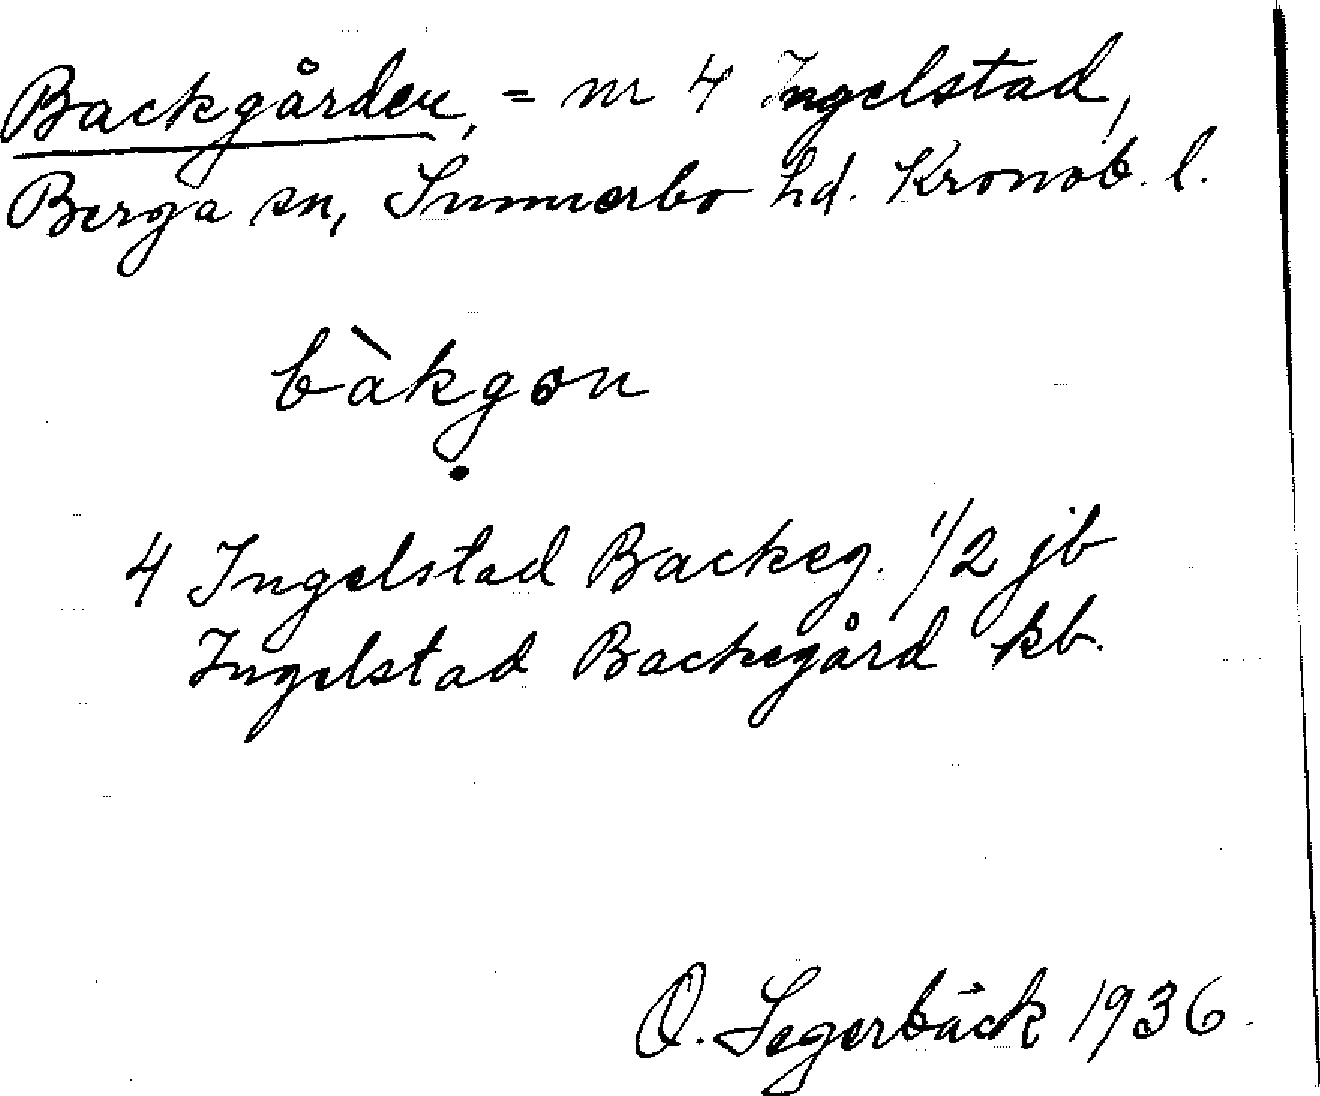 Backgården, = nr 4 Ingelstad,
Berga sn, Sunnerbo hd. Kronob. l.
bàkgọn
4 Ingelstad Backeg. 1/2 jb
Ingelstad Backegård kb.
O. Segerbäck 1936